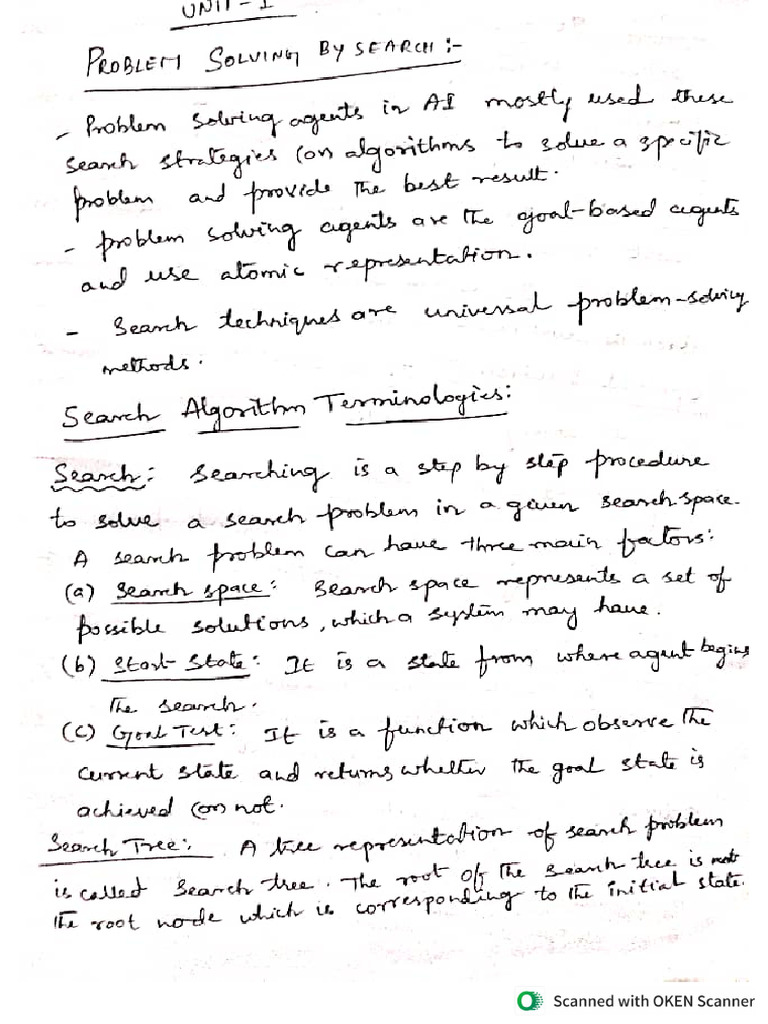 UNIT-I
PROBLEM SOLVING BY SEARCH:-
- Problem solving agents in AI mostly used these
search strategies (or) algorithms to solve a specific
problem and provide the best result.
- problem solving agents are the goal-based agents
and use atomic representation.
- Search techniques are universal problem-solving
methods.
Search Algorithm Terminologies:
Search: Searching is a step by step procedure
to solve a search problem in a given search space.
A search problem can have three main factors:
(a) Search space: Search space represents a set of
possible solutions, which a system may have.
(b) Start State: It is a state from where agent begins
the search.
(c) Goal Test: It is a function which observe the
current state and returns whether the goal state is
achieved (or) not.
Search Tree: A tree representation of search problem
is called Search tree. The root of the search tree is
the root node which is corresponding to the initial state.
Scanned with OKEN Scanner